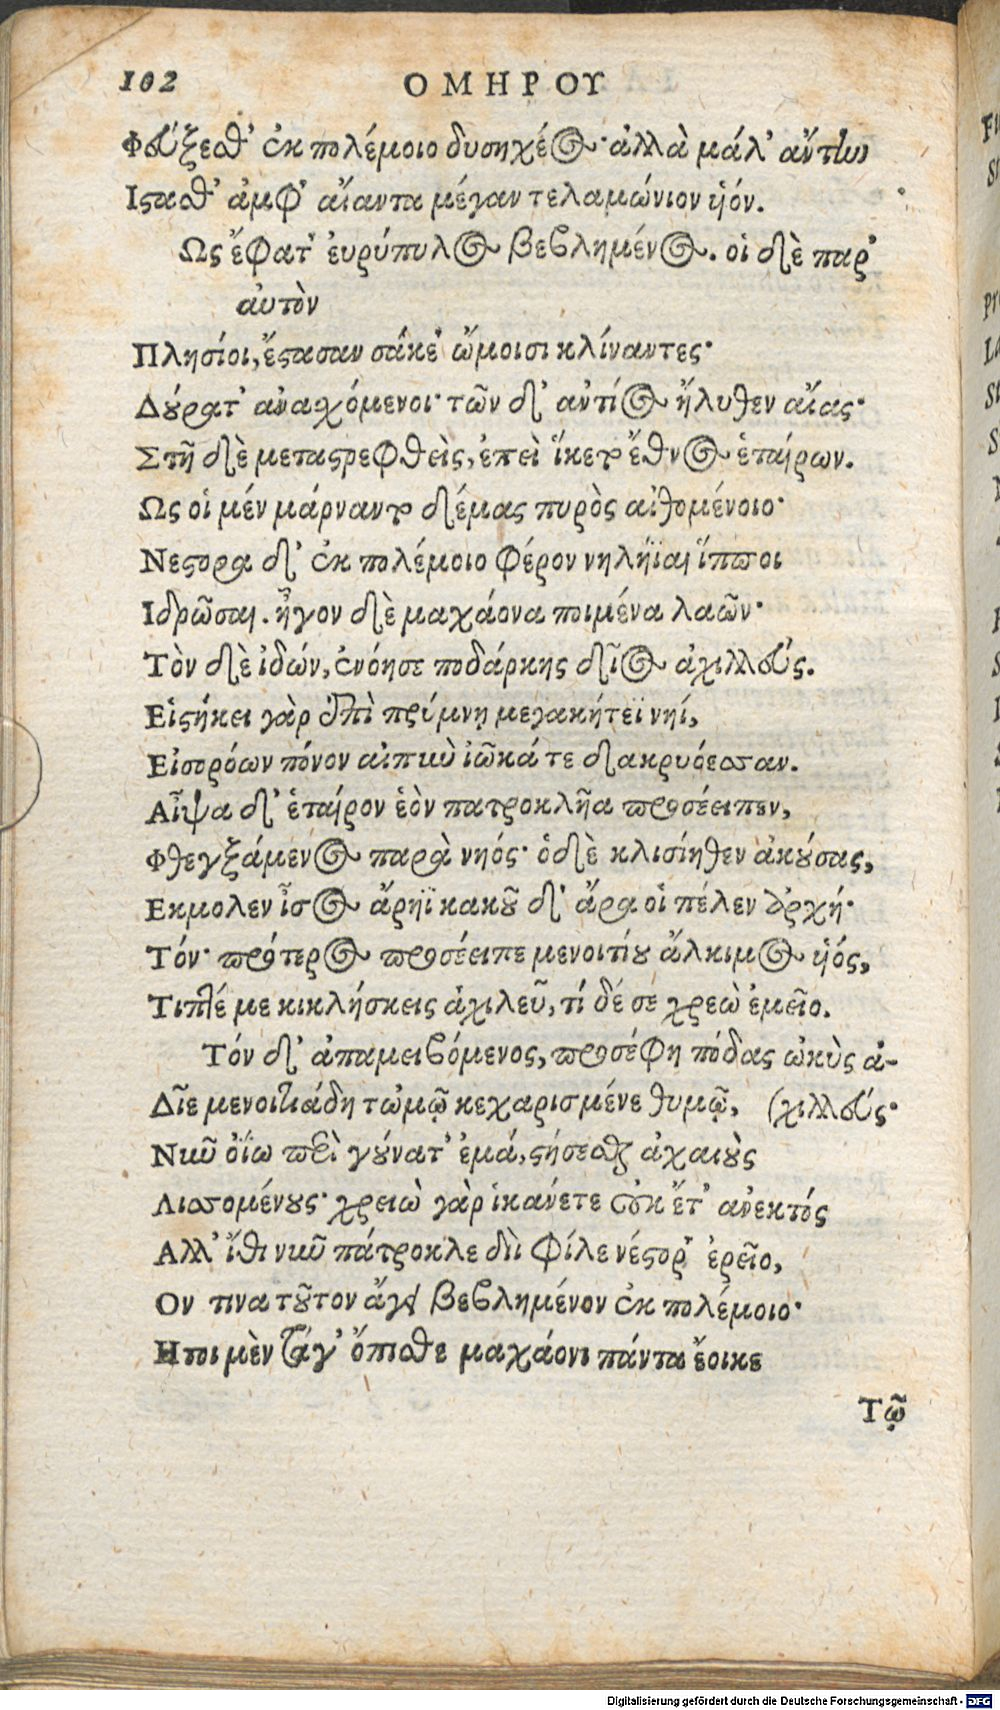 102 ΟΜΗΡΟΥ
Φεύξεσθ' ἐκ πολέμοιο δυσηχέος· ἀλλὰ μάλ' ἄντην
Ιστασθ' ἀμφ' αἴαντα μέγαν τελαμώνιον ὑιόν.
Ως ἔφατ' ἐυρύπυλος βεβλημένος. οἱ δὲ παρ'
αὐτὸν
Πλησίοι, ἔστασαν σάκε' ὤμοισι κλίναντες·
Δούρατ' ἀνασχόμενοι· τῶν δ' ἀντίος ἤλυθεν αἴας·
Στῆ δὲ μεταστρεφθεὶς, ἐπεὶ ἵκετο ἔθνος ἑταίρων.
Ως οἱ μέν μάρναντο δέμας πυρὸς αἰθομένοιο·
Νέστορα δ' ἐκ πολέμοιο φέρον νηλήϊαι ἵπποι
Ιδρῶσαι. ἦγον δὲ μαχάονα ποιμένα λαῶν·
Τὸν δὲ ἰδών, ἐνόησε ποδάρκης δῖος ἀχιλλεύς.
Εἱστήκει γὰρ ἐπὶ πρύμνῃ μεγακήτεϊ νηί,
Εἰσορόων πόνον αἰπὺν ἰῶκά τε δακρυόεσσαν.
Αἶψα δ' ἑταίρον ἑὸν πατροκλῆα προσέειπεν,
Φθεγξάμενος παρὰ νηός· ὁ δὲ κλισίηθεν ἀκούσας,
Εκμολεν ἶσος ἄρηϊ κακοῦ δ' ἄρα οἱ πέλεν ἀρχή·
Τόν· πρότερος προσέειπε μενοιτίου ἄλκιμος ὑιός,
Τιπτέ με κικλήσκεις ἀχιλεῦ, τί δέ σε χρεὼ ἐμεῖο.
Τόν δ' ἀπαμειβόμενος, προσέφη πόδας ὠκὺς ἀ-
Δῖε μενοιτιάδη τὠμῷ κεχαρισμένε θυμῷ, (χιλλεύς·
Νῦν ὀΐω περὶ γούνατ' ἐμά, στήσεσθαι ἀχαιοὺς
Λισσομένους· χρειὼ γὰρ ἱκάνετε οὐκ ἔτ' ἀνεκτός
Αλλ' ἴθι νῦν πάτροκλε διὶ φίλε νέστορ' ἐρεῖο,
Ον τινα τοῦτον ἄγει βεβλημένον ἐκ πολέμοιο·
Ητοι μὲν τάγ' ὄπισθε μαχάονι πάντα ἔοικε
Τῷ
Digitalisierung gefördert durch die Deutsche Forschungsgemeinschaft - DFG